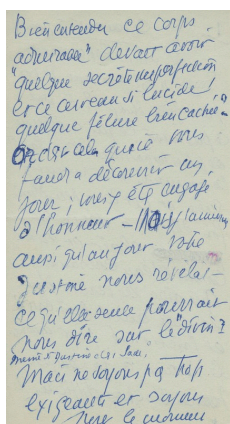 Bien entendu ce corps
admirable" devait avoir
"quelque secrète imperfection
et ce cerveau si lucide!
quelque fêlure bien cachée"
Or c'est cela qu'il vous
faudra découvrir un
jour; vous y êtes engagé
d'honneur — Nous aimerions
aussi qu'un jour votre
Justine nous révélât
ce qu'elle seule pourrait
nous dire sur le "divin"?
Mais ne soyons pas trop
exigeant et soyons